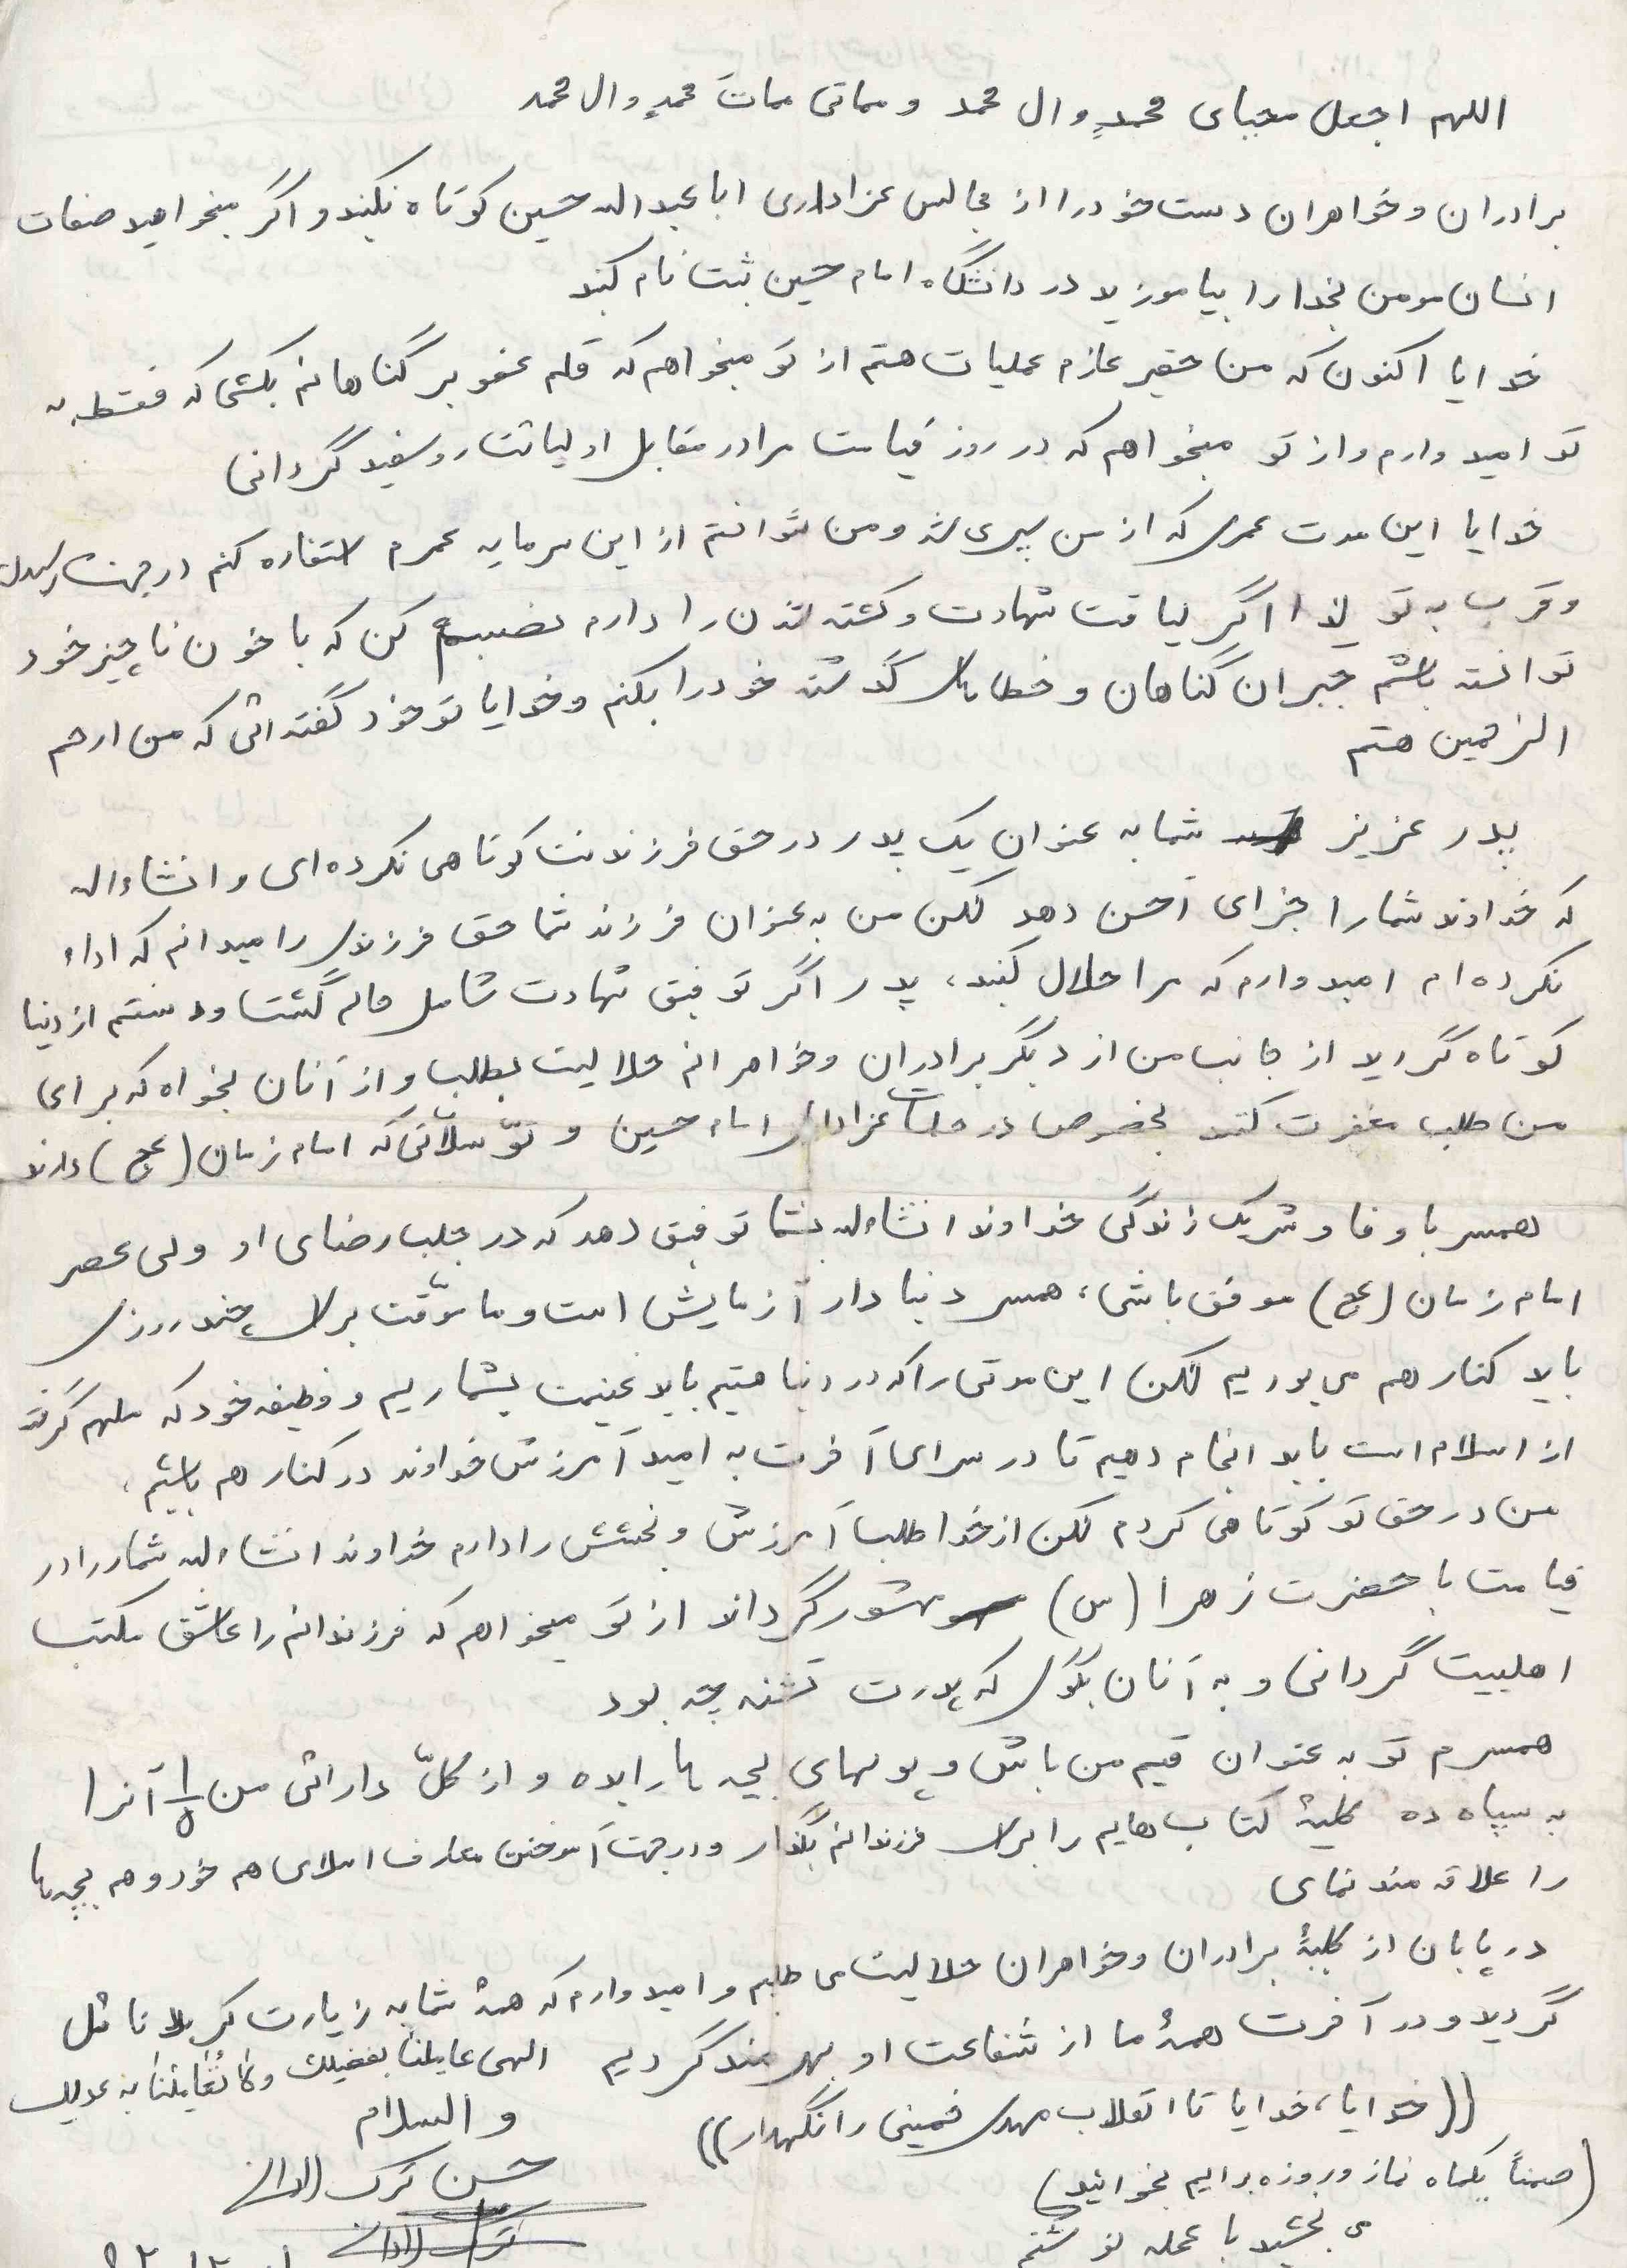 اللهم اجعل محیای محمدٍ و ال محمد و مماتی مماتَ محمدٍ و ال محمد
برادران و خواهران دست خود را از مجالس عزاداری ابا عبداله حسین کوتاه نکیند و اگر میخواهید صفات
انسان مومن بخدا را بیاموزید در دانشگاه امام حسین ثبت نام کنید
خدایا اکنون که من حقیر عازم عملیات هستم از تو میخواهم که قلم عفو بر گناهانم بکشی که فقط به
تو امید دارم و از تو میخواهم که در روز قیامت مرا در مقابل اولیائت روسفید گردانی
خدایا این مدت عمری که از من سپری شد و من نتوانستم از این سرمایه عمرم استفاده کنم در جهت رسیدن
و قرب به تو لذا اگر لیاقت شهادت و کشته شدن را دارم نصیبم کن که با خون ناچیز خود
توانسته باشم جبران گناهان و خطاهای گذشته خود را بکنم و خدایا تو خود گفته ائی که من ارحم
الرحمین هستم
پدر عزیز شما به عنوان یک پدر در حق فرزندنت کوتاهی نکرده ای و انشاءاله
که خداوند شما را جزای احسن دهد لکن من به عنوان فرزند شما حق فرزندی را میدانم که اداء
نکرده ام امیدوارم که مرا حلال کنید، پدر اگر توفیق شهادت شامل حالم گشت و دستم از دنیا
کوتاه گردید از جانب من از دیگر برادران و خواهرانم حلالیت بطلب و از آنان بخواه که برای
من طلب مغفرت کنند بخصوص در جلسات عزاداری امام حسین و توّسلاتی که امام زمان (عج) دارند
همسر با وفا و شریک زندگی خداوند انشاءاله بشما توفیق دهد که در جلب رضای او و ولی عصر
امام زمان (عج) موفق باشی، همسر دنیا دار آزمایش است و ما موّقت برای چند روزی
باید کنار هم می بودیم لکن این مدتی را که در دنیا هستیم باید غنیمت بشماریم و وظیفه خود که ملهم گرفته
از اسلام است باید انجام دهیم تا در سرای آخرت به امید آمرزش خداوند در کنار هم باشیم،
من در حق تو کوتاهی کردم لکن از خدا طلب آمرزش و بخشش را دارم خداوند انشاءاله شما را در
قیامت با حضرت زهرا (س) محشور گرداند از تو میخواهم که فرزندانم را عاشق مکتب
اهلبیت گردانی و به آنان بگوی که پدرت تشنه چه بود
همسرم تو به عنوان قیم من باش و پولهای بچه ها را بده و از کلّ دارائی من ۱/۵ آنرا
به سپاه ده کلیهٔ کتاب هایم را برای فرزندانم بگذار و در جهت آموختن معارف اسلامی هم خود و هم بچه ها
را علاقه مند نمای
در پایان از کلیهٔ برادران و خواهران حلالیت می طلبم و امیدوارم که همهٔ شما به زیارت کربلا نائل
گردید و در آخرت همهٔ ما از شفاعت او بهرمند گردیم الهی عاملنا بفضلک ولا تُعاملنا به عدلک
((خدایا، خدایا تا انقلاب مهدی خمینی را نگهدار))
والسلام
(ضمناً یکماه نماز و روزه برایم بخوانید)
حسن ترک
می بخشید با عجله نوشتم